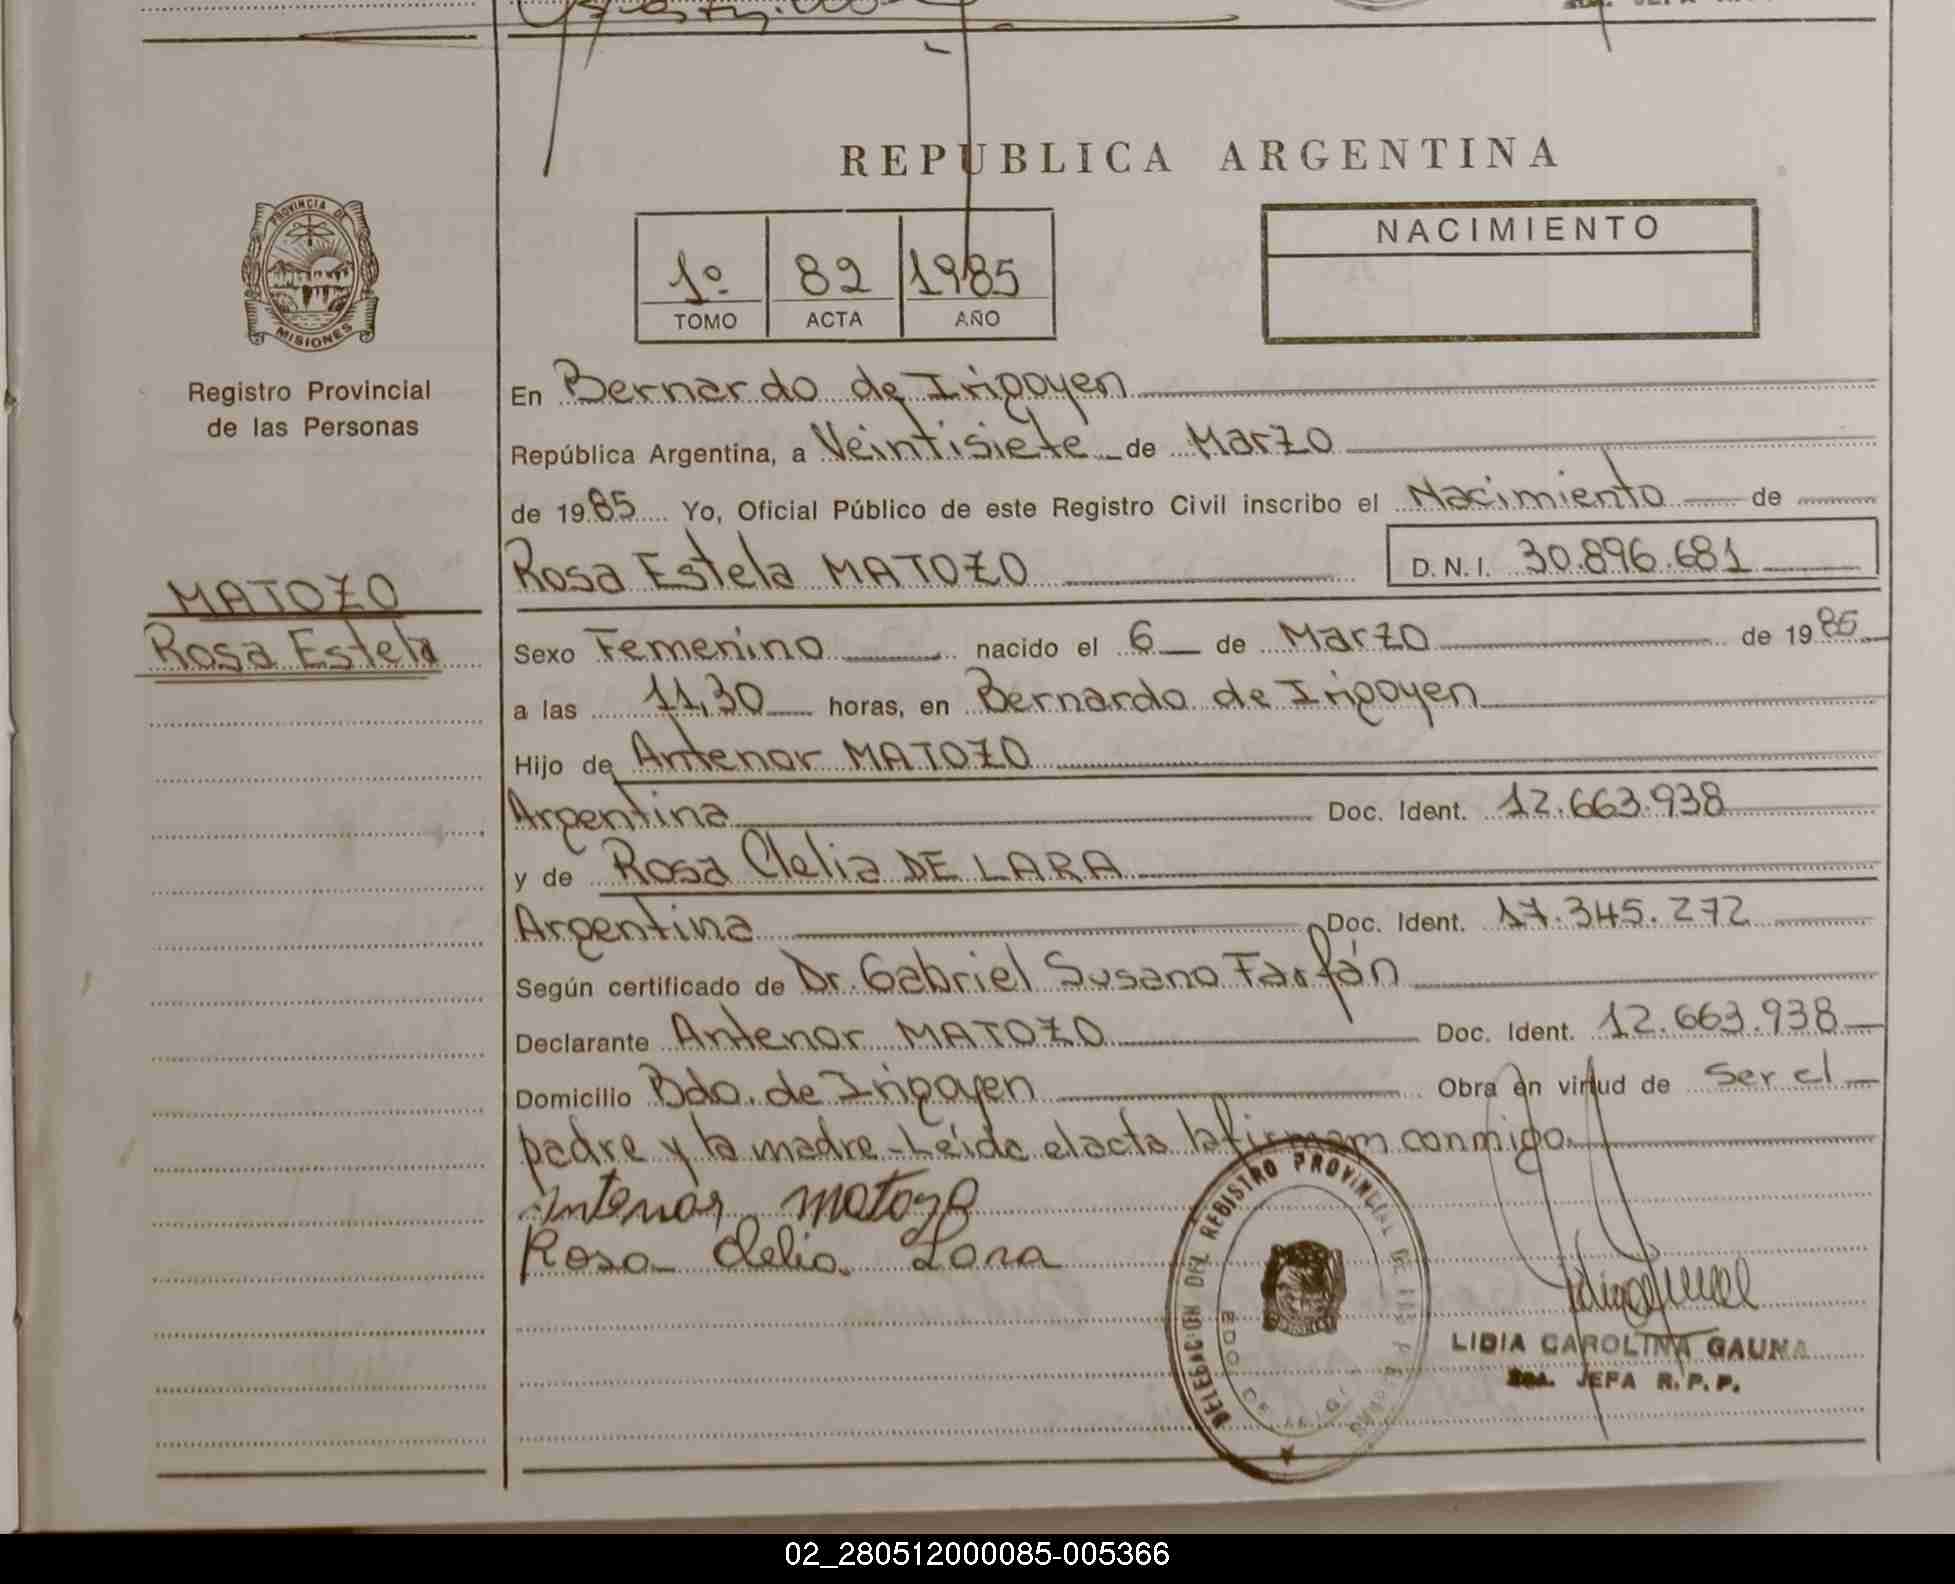 REPUBLICA ARGENTINA
PROVINCIA DE
MISIONES
Registro Provincial
de las Personas
1º 82 1985
TOMO ACTA AÑO
NACIMIENTO
En Bernardo de Irigoyen
República Argentina, a Veintisiete de Marzo
de 1985 Yo, Oficial Público de este Registro Civil inscribo el Nacimiento de
Rosa Estela MATOZO D.N.I. 30.896.681
MATOZO
Rosa Estela
Sexo Femenino nacido el 6 de Marzo de 1985
a las 11,30 horas, en Bernardo de Irigoyen
Hijo de Antenor MATOZO
Argentina Doc. Ident. 12.663.938
y de Rosa Clelia DE LARA
Argentina Doc. Ident. 17.345.272
Según certificado de Dr. Gabriel Susano Farfán
Declarante Antenor MATOZO Doc. Ident. 12.663.938
Domicilio Bdo. de Irigoyen Obra en virtud de Ser el
padre y la madre - Leída el acta la firman conmigo.
Antenor Matozo
Rosa Clelia Lara
DELEGACION DEL REGISTRO PROVINCIAL DE LAS
LIDIA CAROLINA GAUNA
JEFA R.P.P.
02_280512000085-005366